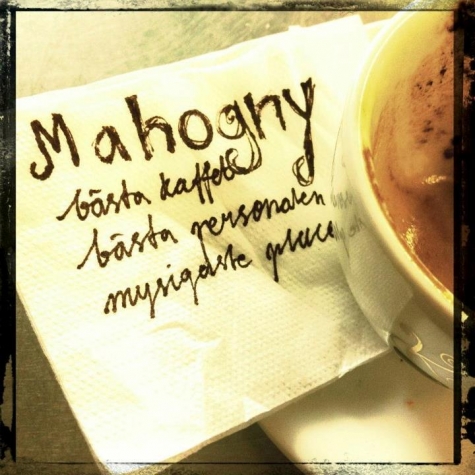 Mahogny
bästa kaffet
bästa personalen
mysigaste place